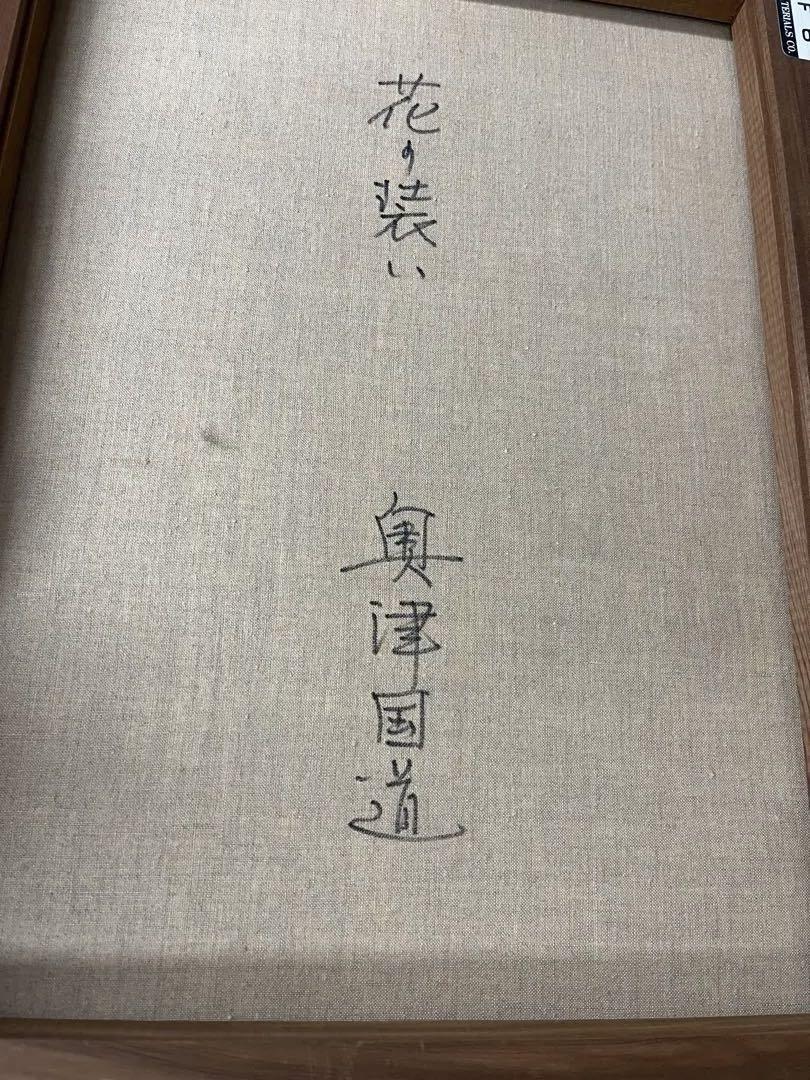 花の装い
奥津国道
F 8
TERIALS CO.